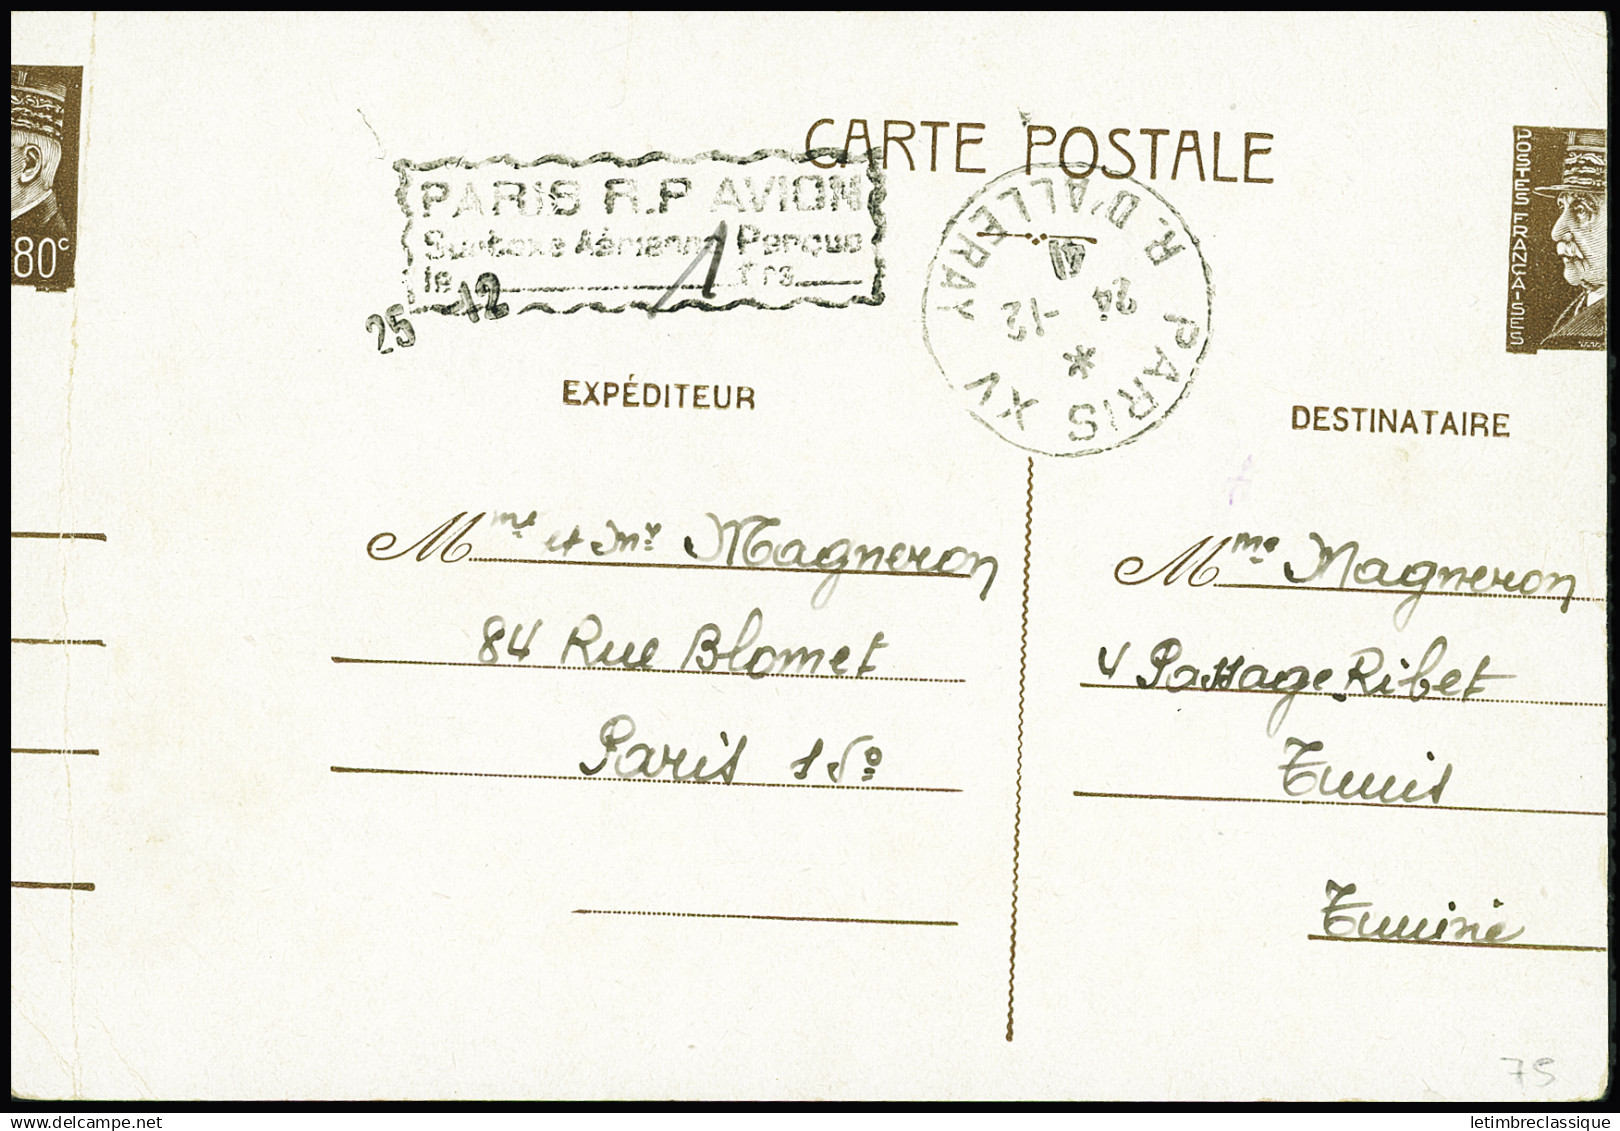 CARTE POSTALE
80c
POSTES FRANÇAISES
PARIS R.P AVION
Surtaxe Aérienne Perçue
le 1 frs
25 12
PARIS XV R. D'ALLERAY
24 -12
41
EXPÉDITEUR
DESTINATAIRE
Mme et Mr Magneron
84 Rue Blomet
Paris 15o
Mme Magneron
4 Passage Ribet
Tunis
Tunisie
75
letimbreclassique